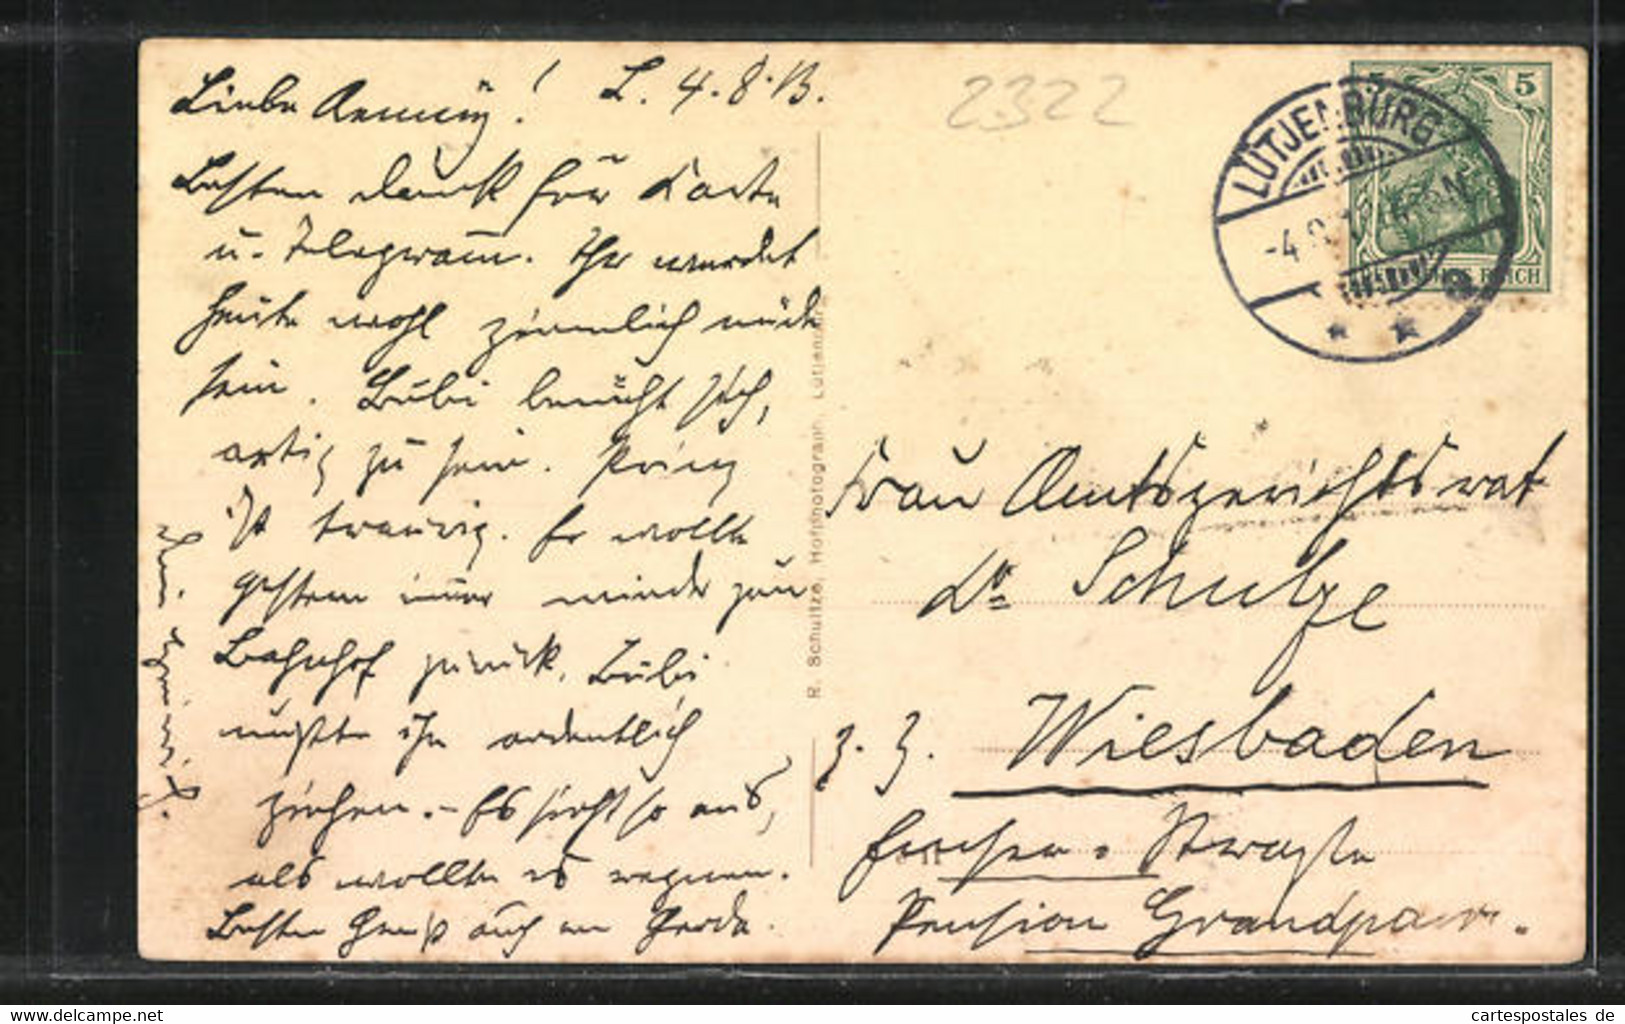 L. 4.8.13.
Liebe Aenning!
Besten Dank für Karte
u. Telegramm. Ihr werdet
heute wohl ziemlich müde
sein. Bubi bemüht sich,
artig zu sein. Prinz
ist traurig. Er wollte
gestern immer wieder zum
Bahnhof zurück. Bubi
mußte ihn ordentlich
ziehen. - Es sieht so aus,
als wollte es regnen.
Besten Gruß auch an Gerda.
2322
LÜTJENBURG
-4.8.
5
REICH
R. Schultze, Hofphotograph, Lütjenburg
Frau Amtsgerichtsrat
Dr Schulze
z. Z. Wiesbaden
Emser-Strasse
Pension Grandpair.
cartespostales de
www.cartespostales.de